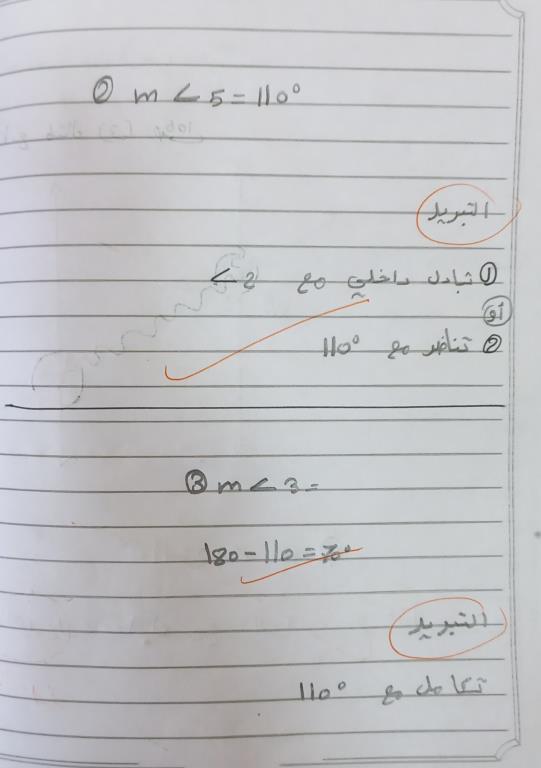 ② m < 5 = 110°
التبرير
① تبادل داخلي مع 2 >
أو
② تناضر مع 110°
③ m < 3 =
180 - 110 = 70°
التبرير
تكامل مع 110°